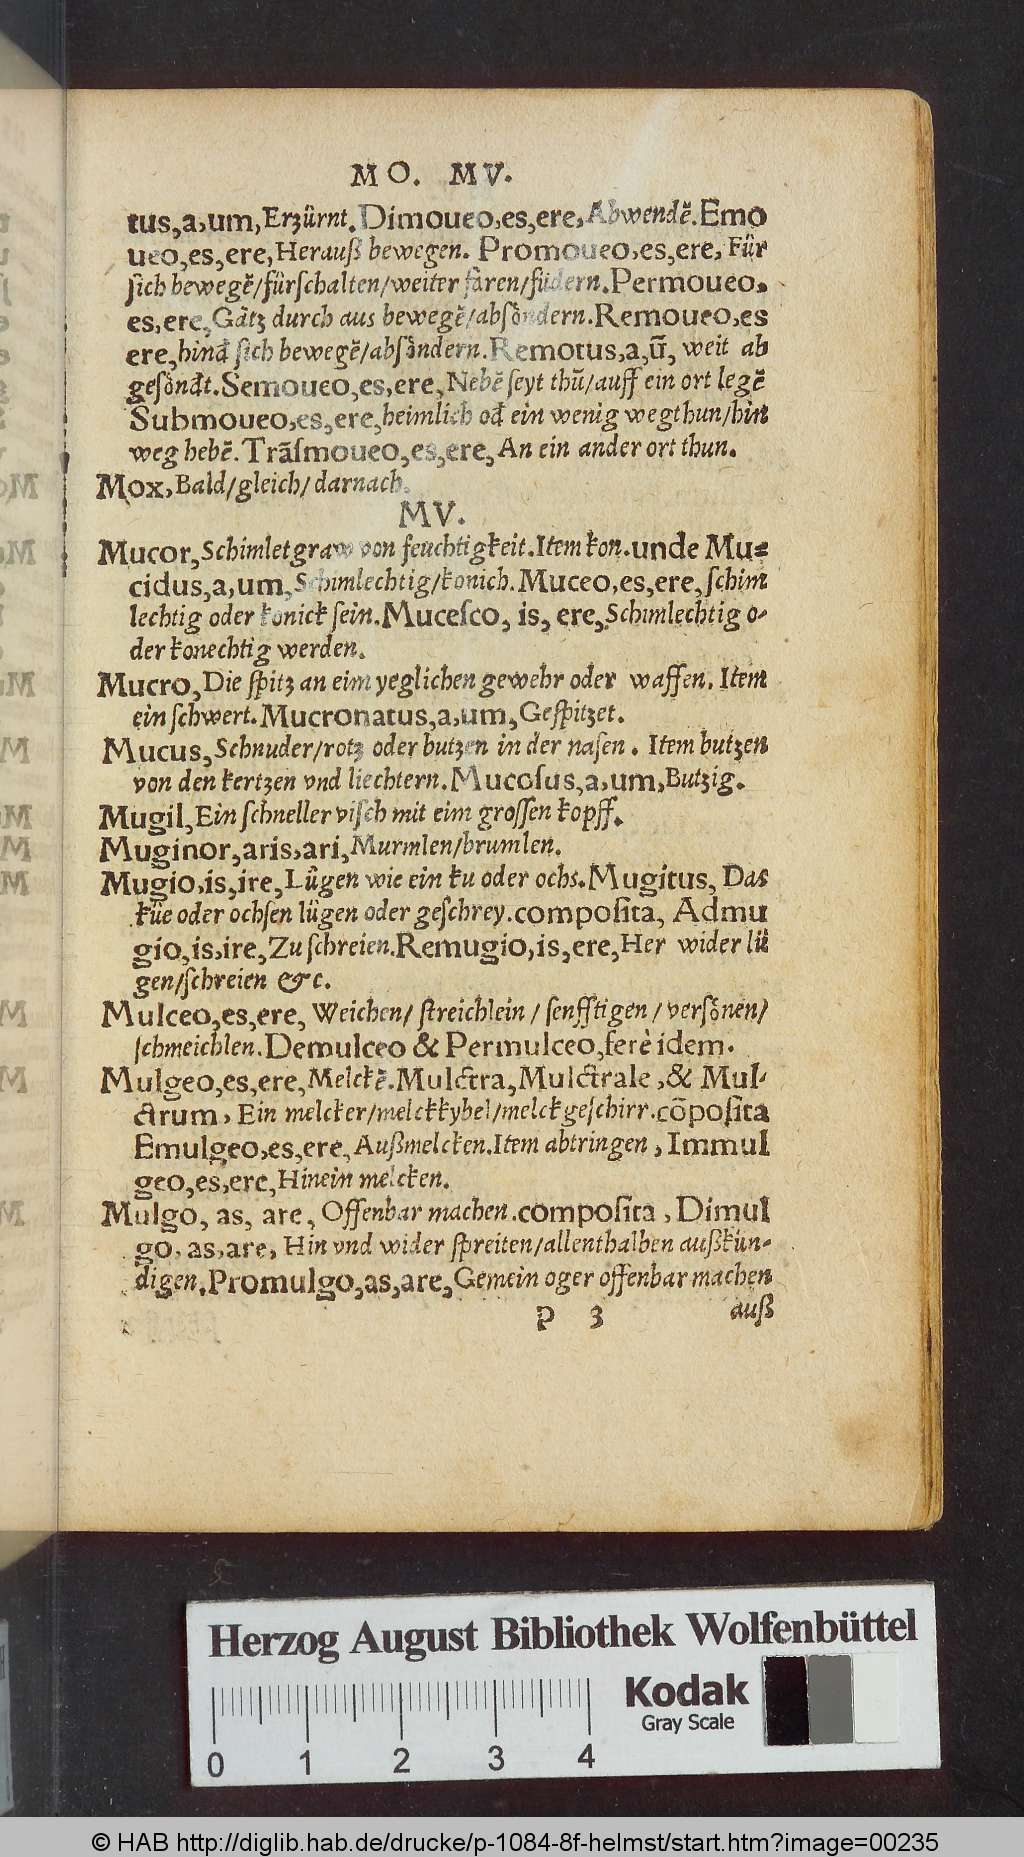 MO. MV.
tus,a,um, Erzürnt. Dimoueo,es,ere, Abwendẽ. Emo
ueo,es,ere, Herauß bewegen. Promoueo,es,ere, Für
sich bewegẽ/fürschalten/weiter faren/füdern. Permoueo.
es,ere, Gãtz durch aus bewegẽ/absöndern. Remoueo,es
ere, hind̃ sich bewegẽ/absöndern. Remotus,a,ũ, weit ab
gesönd̃t. Semoueo,es,ere, Nebẽ seyt thũ/auff ein ort legẽ
Submoueo,es,ere, heimlich od̃ ein wenig wegthun/hin
weg hebẽ. Trãſmoueo,es,ere, An ein ander ort thun.
Mox, Bald/gleich/darnach.
MV.
Mucor, Schimlet graw von feuchtigkeit. Item kon. unde Mu=
cidus,a,um, Schimlechtig/konich. Muceo,es,ere, ſchim
lechtig oder konick ſein. Muceſco, is, ere, Schimlechtig o-
der konechtig werden.
Mucro, Die ſpitz an eim yeglichen gewehr oder waffen. Item
ein ſchwert. Mucronatus,a,um, Geſpitzet.
Mucus, Schnuder/rotz oder butzen in der naſen. Item butzen
von den kertzen vnd liechtern. Mucoſus,a,um, Butzig.
Mugil, Ein ſchneller viſch mit eim groſſen kopff.
Muginor,aris,ari, Murmlen/brumlen.
Mugio,is,ire, Lügen wie ein ku oder ochs. Mugitus, Das
küe oder ochſen lügen oder geſchrey. compoſita, Admu
gio,is,ire, Zu ſchreien. Remugio,is,ere, Her wider lü
gen/ſchreien &c.
Mulceo,es,ere, Weichen/ ſtreichlein/ ſenfftigen/ verſönen/
ſchmeichlen. Demulceo & Permulceo, ferè idem.
Mulgeo,es,ere, Melckẽ. Mulctra, Mulctrale, & Mul-
ctrum, Ein melcker/melckkybel/melckgeſchirr. cõpoſita
Emulgeo,es,ere, Außmelcken. Item abtringen, Immul
geo,es,ere, Hinein melcken.
Mulgo, as, are, Offenbar machen. compoſita, Dimul
go, as,are, Hin vnd wider ſpreiten/allenthalben außkün-
digen. Promulgo,as,are, Gemein oger offenbar machen
P 3 auß
Herzog August Bibliothek Wolfenbüttel
Kodak
Gray Scale
0 1 2 3 4
© HAB http://diglib.hab.de/drucke/p-1084-8f-helmst/start.htm?image=00235